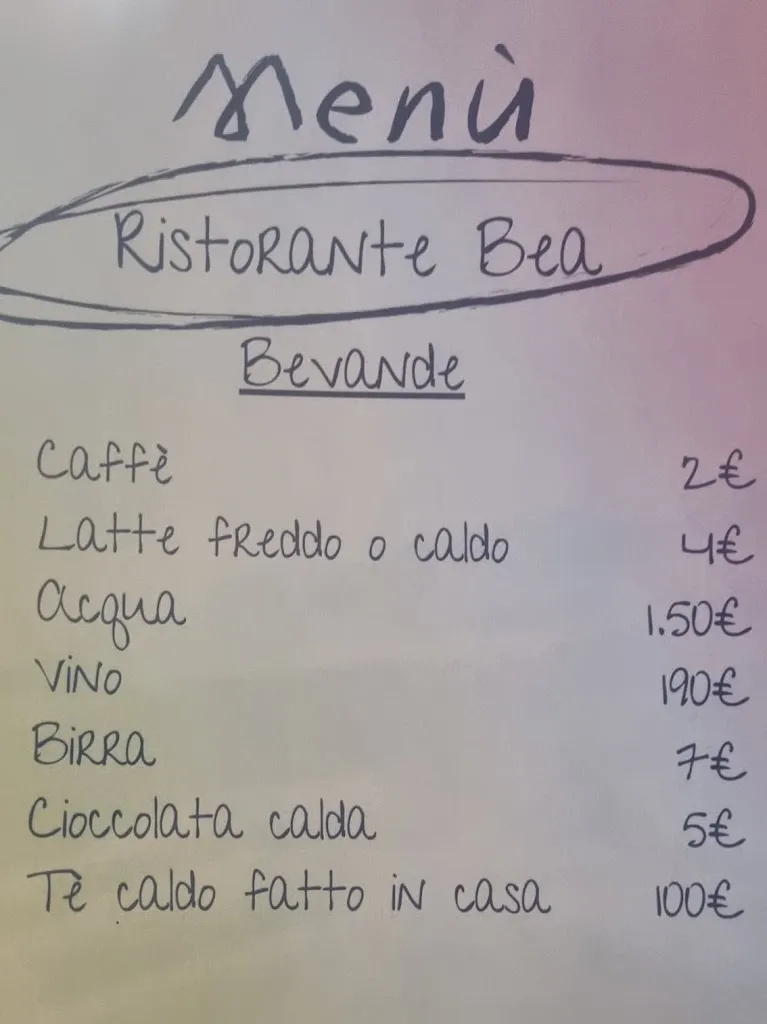 Menù
Ristorante Bea
Bevande
Caffè 2€
Latte freddo o caldo 4€
Acqua 1.50€
Vino 190€
Birra 7€
Cioccolata calda 5€
Tè caldo fatto in casa 100€